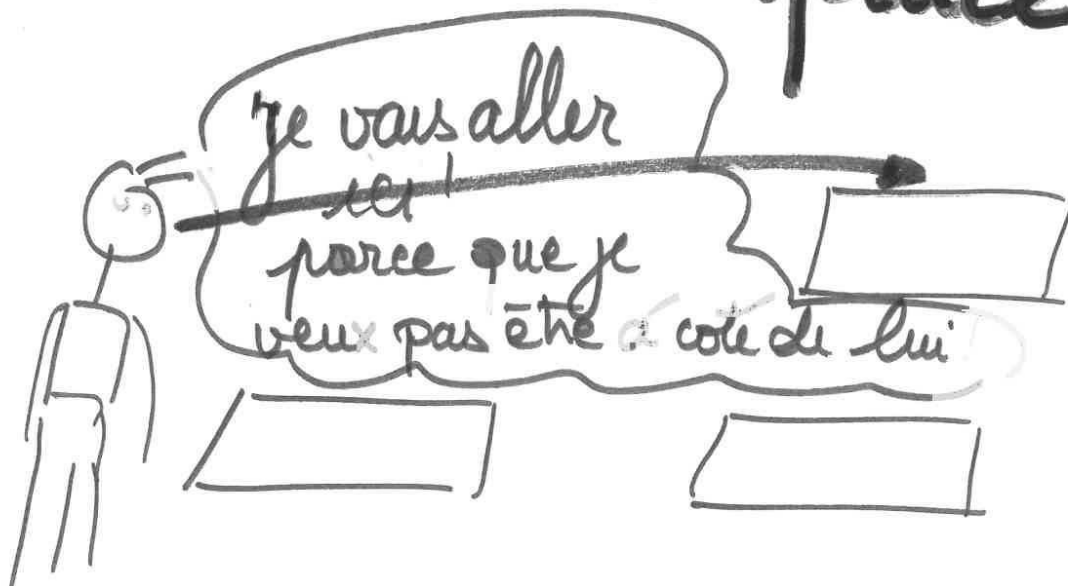 Je vais aller
ici
parce que je
veux pas être à coté de lui